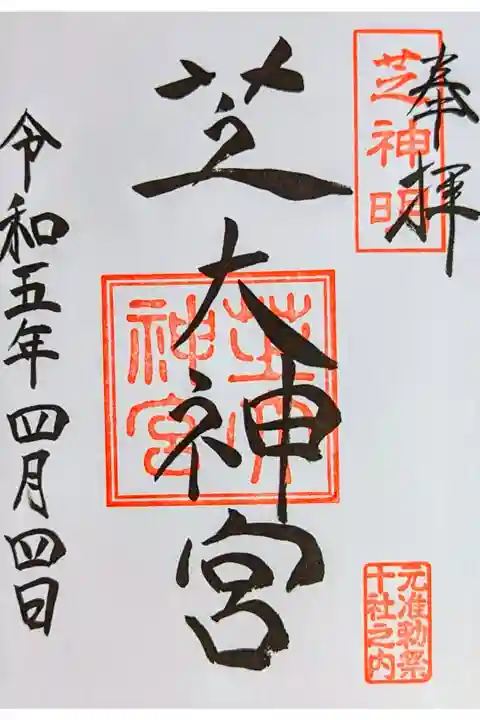 奉拝
芝神明
芝大神宮
元准勅祭
十社之内
令和五年四月四日